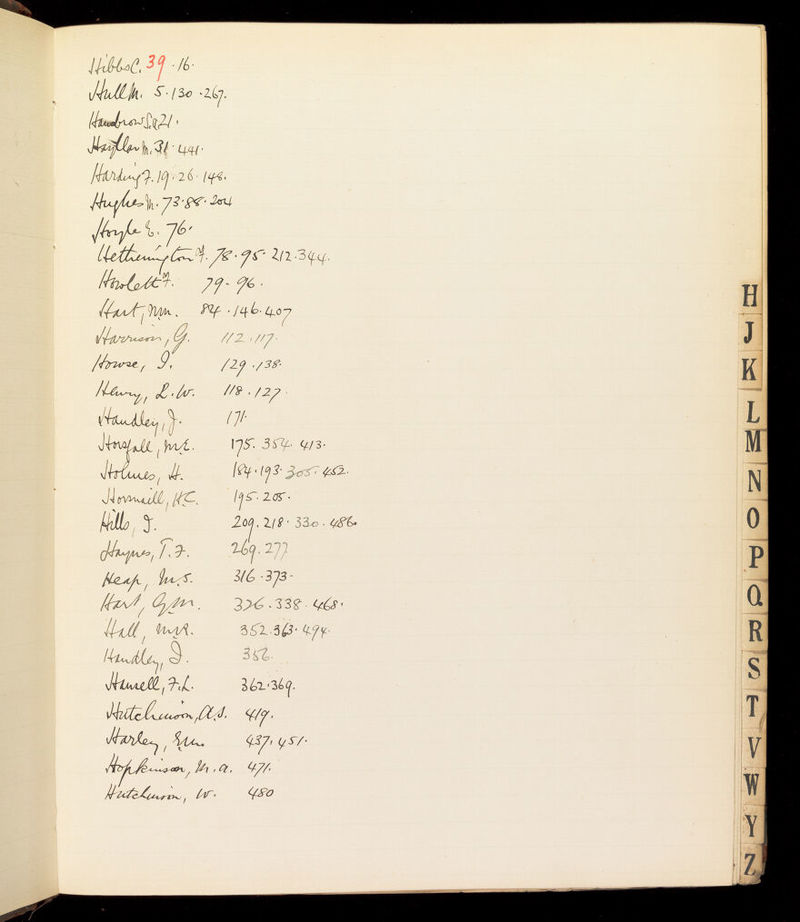 Hibbs C. 39 . 16.
Hull M. 5. 130 . 267.
21.
Hayllar M. 31. 441.
Harding F. 19. 26. 148.
Hughes M. 73. 88. 204
Hoyle E. 76.
Hetherington F. 78. 95. 212. 344.
Howlett 79. 96.
Hart, MM. 84. 146. 407
Harrison, G. 112. 117.
Howse, I. 129. 138.
Henry, L.W. 118. 127.
Handley, J. 171.
Horsfall, M.E. 175. 354. 413.
Holmes, H. 184. 193. 305. 452.
Horsnaill, H.C. 195. 205.
Hills, I. 209. 218. 330. 486.
Haynes, T.F. 269. 277
Heap, M.S. 316. 373.
Hart, G.M. 326. 338. 468.
Hall, M.R. 352. 363. 494.
Handley, I. 356.
Hansell, F.L. 362. 369.
Hutchinson, A.S. 419.
Harley, E.M. 437. 451.
Hopkinson, M.A. 471.
Hutchinson, W. 480
H
J
K
L
M
N
O
P
Q
R
S
T
V
W
Y
Z